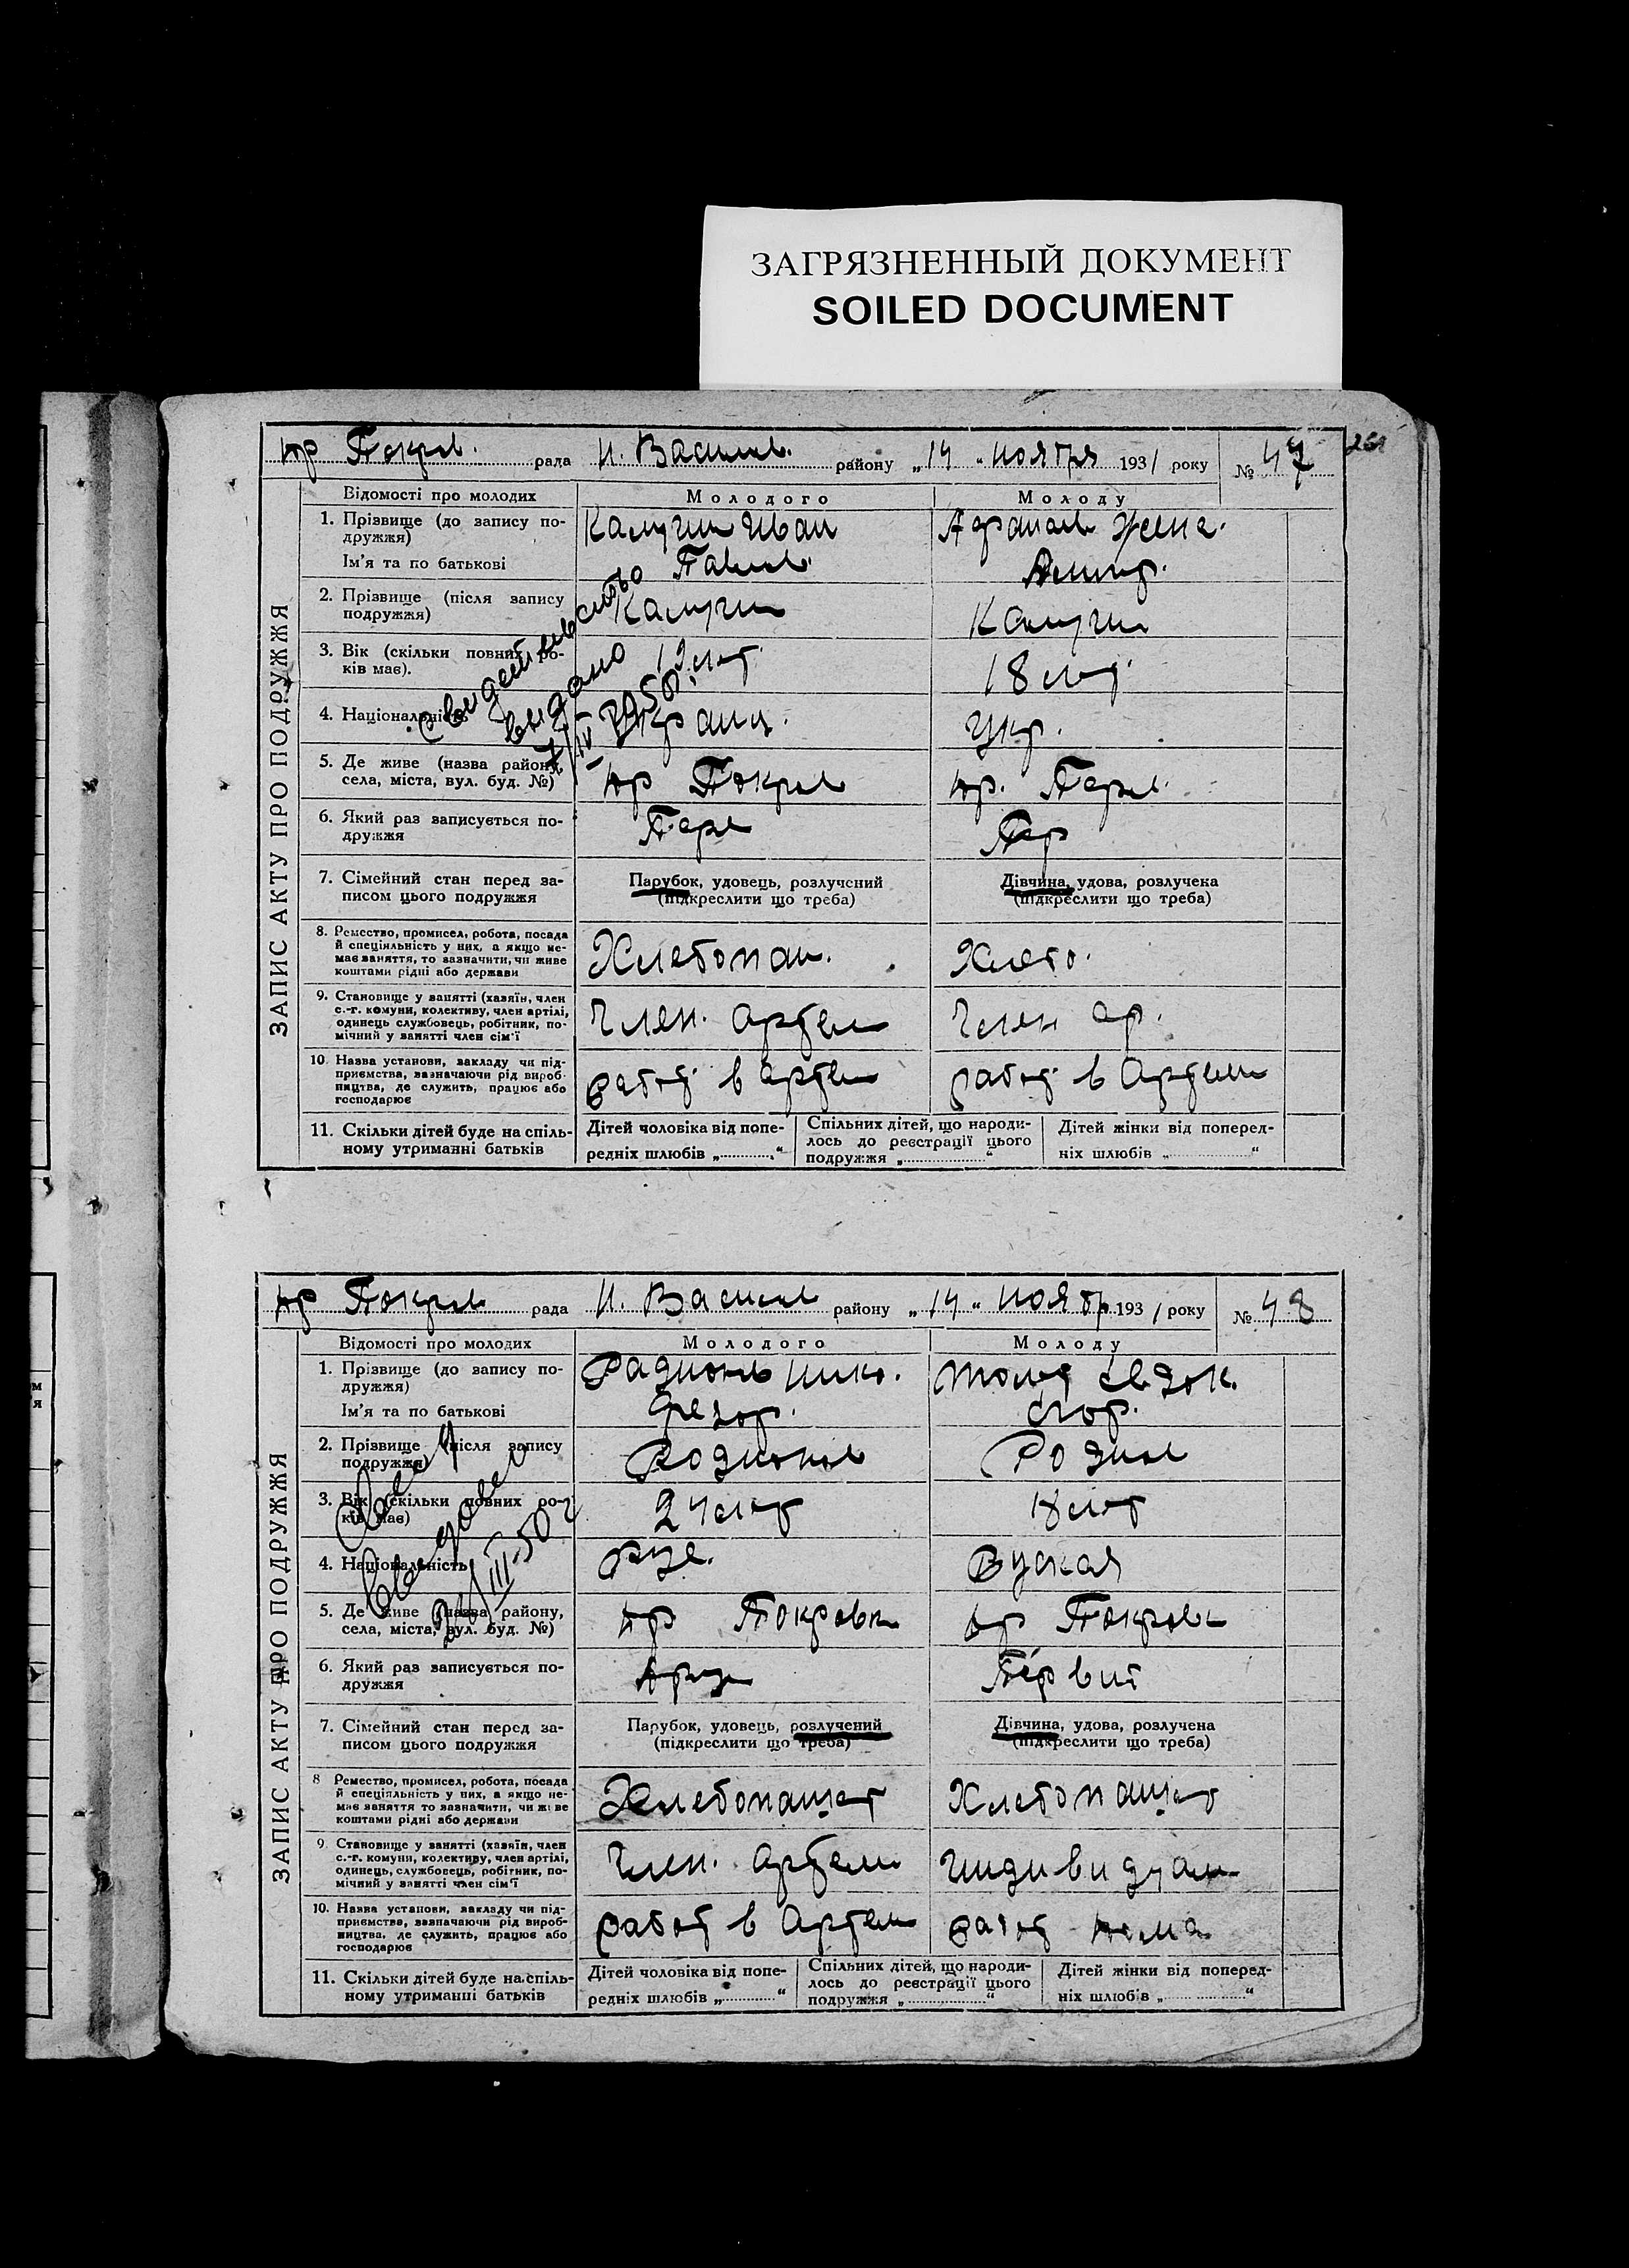 ЗАГРЯЗНЕННЫЙ ДОКУМЕНТ
SOILED DOCUMENT
Покров. рада Н. Васильев. району „14 “ ноября 1931 року № 47
261
ЗАПИС АКТУ ПРО ПОДРУЖЖЯ
Відомості про молодих
Молодого
Молоду
1. Прізвище (до запису по-
дружжя)
Ім'я та по батькові
Калугин Иван
Павлов.
2. Прізвище (після запису
подружжя)
Калугин
Калугин
3. Вік (скільки повних ро-
ків має).
19 лет.
18 лет.
4. Національність
Украин.
Укр.
5. Де живе (назва району,
села, міста, вул. буд. №)
Покров
6. Який раз записується по-
дружжя
Перв
Пер
7. Сімейний стан перед за-
писом цього подружжя
Парубок, удовець, розлучений
(підкреслити що треба)
Дівчина, удова, розлучена
(підкреслити що треба)
8. Ремество, промисел, робота, посада
й спеціяльність у них, а якщо не-
має заняття, то зазначити, чи живе
коштами рідні або держави
Хлебопаш.
Хлебо.
9. Становище у занятті (хазяїн, член
с.-г. комуни, колективу, член артілі,
одинець службовець, робітник, по-
мічний у занятті член сім'ї
Член. артели
Член ар.
10. Назва установи, закладу чи під-
приємства, зазначаючи рід вироб-
ництва, де служить, працює або
господарює
работ. в артели
работ. в Артели
11. Скільки дітей буде на спіль-
ному утриманні батьків
Дітей чоловіка від попе-
редніх шлюбів „............“
Спільних дітей, що народи-
лось до реєстрації цього
подружжя „............“
Дітей жінки від поперед-
ніх шлюбів „............“
свидетельство
выдано
Покров рада Н. Васильев району „14 “ ноябр. 1931 року № 48
ЗАПИС АКТУ ПРО ПОДРУЖЖЯ
Відомості про молодих
Молодого
Молоду
1. Прізвище (до запису по-
дружжя)
Ім'я та по батькові
Радионов Нико.
Федор.
Егор.
2. Прізвище (після запису
подружжя)
Родионов
3. Вік (скільки повних ро-
ків має)
24 лет
18 лет
4. Національність
Рус.
Руская
5. Де живе (назва району,
села, міста, вул. буд. №)
Покровк
Покровк
6. Який раз записується по-
дружжя
Первий
7. Сімейний стан перед за-
писом цього подружжя
Парубок, удовець, розлучений
(підкреслити що треба)
Дівчина, удова, розлучена
(підкреслити що треба)
8 Ремество, промисел, робота, посада
й спеціяльність у них, а якщо не-
має заняття то зазначити, чи живе
коштами рідні або держави
Хлебопашет
Хлебопашет
9. Становище у занятті (хазяїн, член
с.-г. комуни, колективу, член артілі,
одинець, службовець, робітник, по-
мічний у занятті член сім'ї
Член. артели
Индивидуал
10. Назва установи, закладу чи під-
приємства, зазначаючи рід вироб-
ництва, де служить, працює або
господарює
работ в Артели
работ дома
11. Скільки дітей буде на спіль-
ному утриманні батьків
Дітей чоловіка від попе-
редніх шлюбів „............“
Спільних дітей, що народи-
лось до реєстрації цього
подружжя „............“
Дітей жінки від поперед-
ніх шлюбів „............“